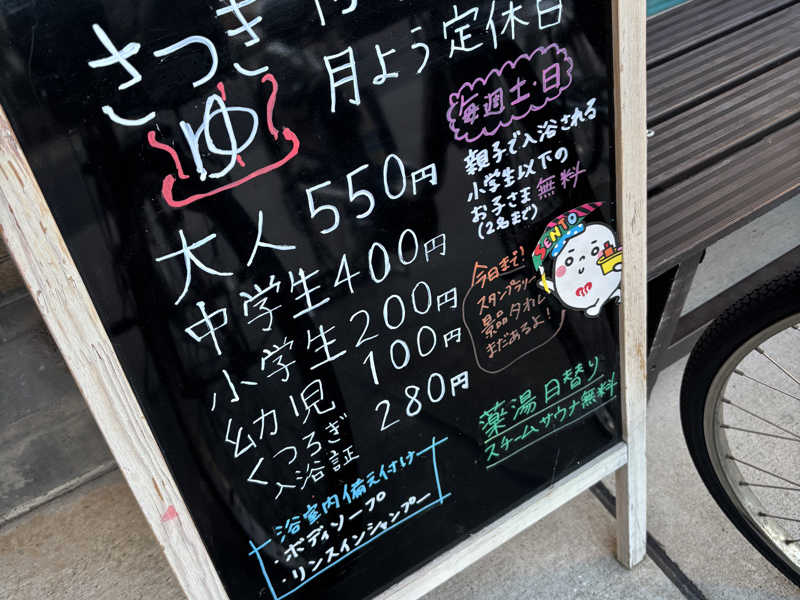 さつき
ゆ
月よう定休日
大人 550円
中学生 400円
小学生 200円
幼児 100円
くつろぎ
入浴証 280円
毎週土・日
親子で入浴される
小学生以下の
お子さま無料
(2名まで)
SENTO
今日まで!
スタンプラリー
景品タオル
まだあるよ!
薬湯日替り
スチームサウナ無料
浴室内備え付け
・ボディソープ
・リンスインシャンプー